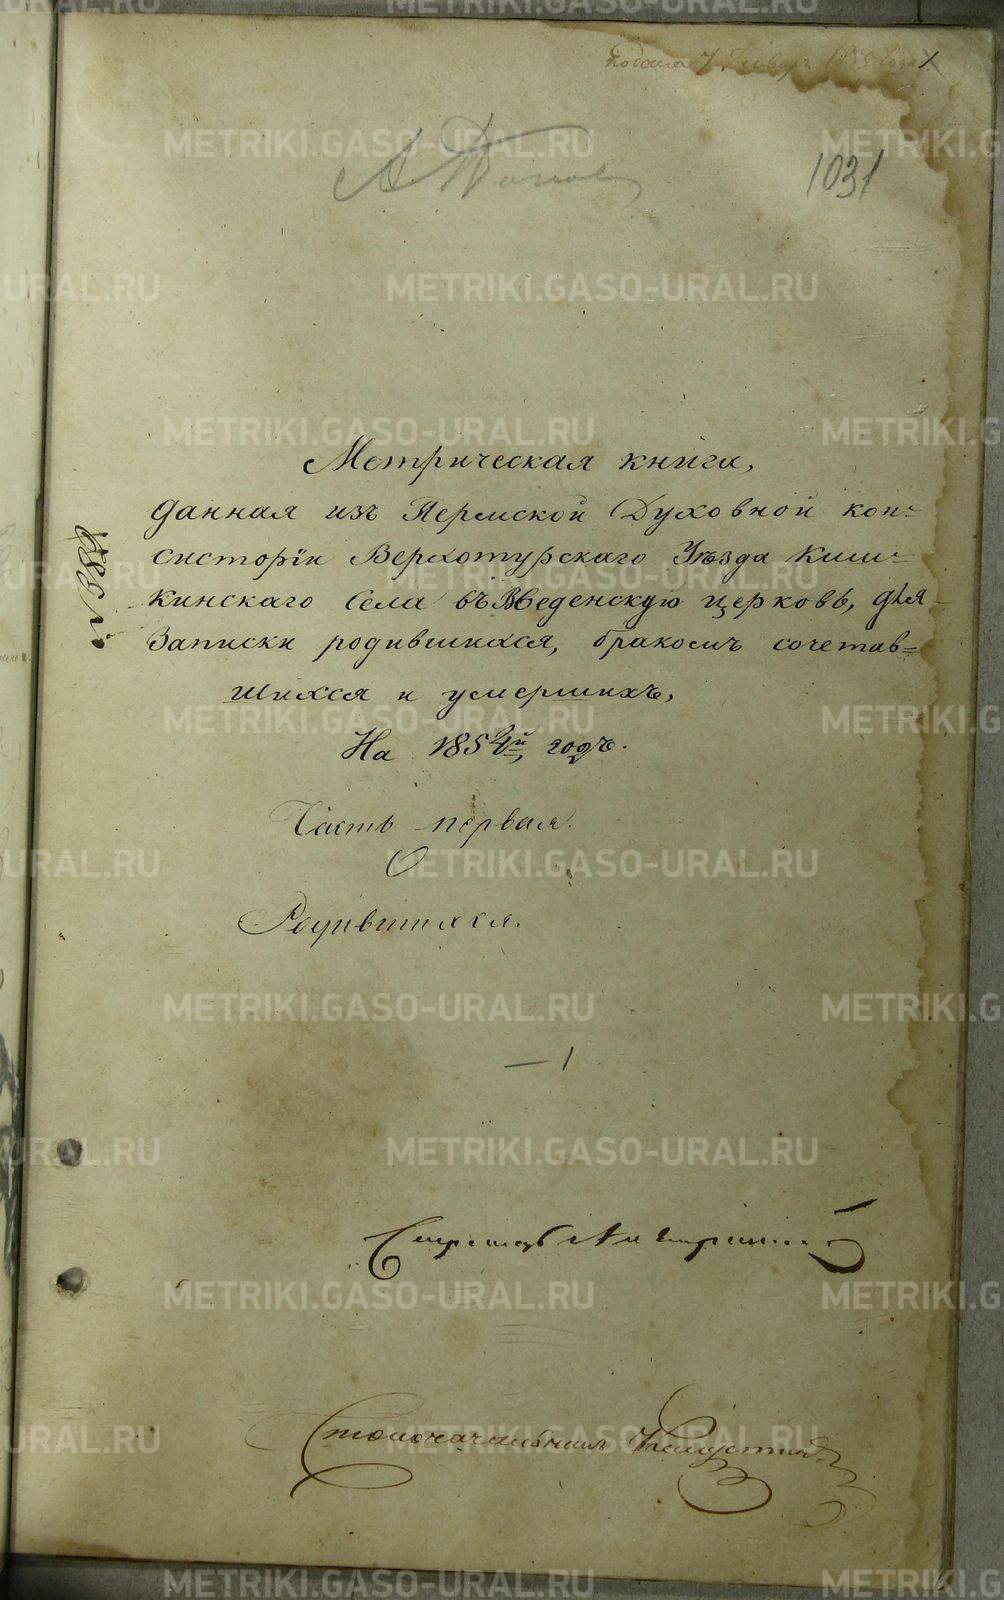 1031
№ 389
Метрическая книга,
данная изъ Пермской Духовной кон=
систорiи Верхотурскаго Уѣзда Киш=
кинскаго Села въ Введенскую церковь, для
Записки родившихся, бракомъ сочетав=
шихся и умершихъ,
На 1854й годъ.
Часть первая.
О
Родившихся.
— 1
Секретарь
Столоначальникъ
METRIKI.GASO-URAL.RU